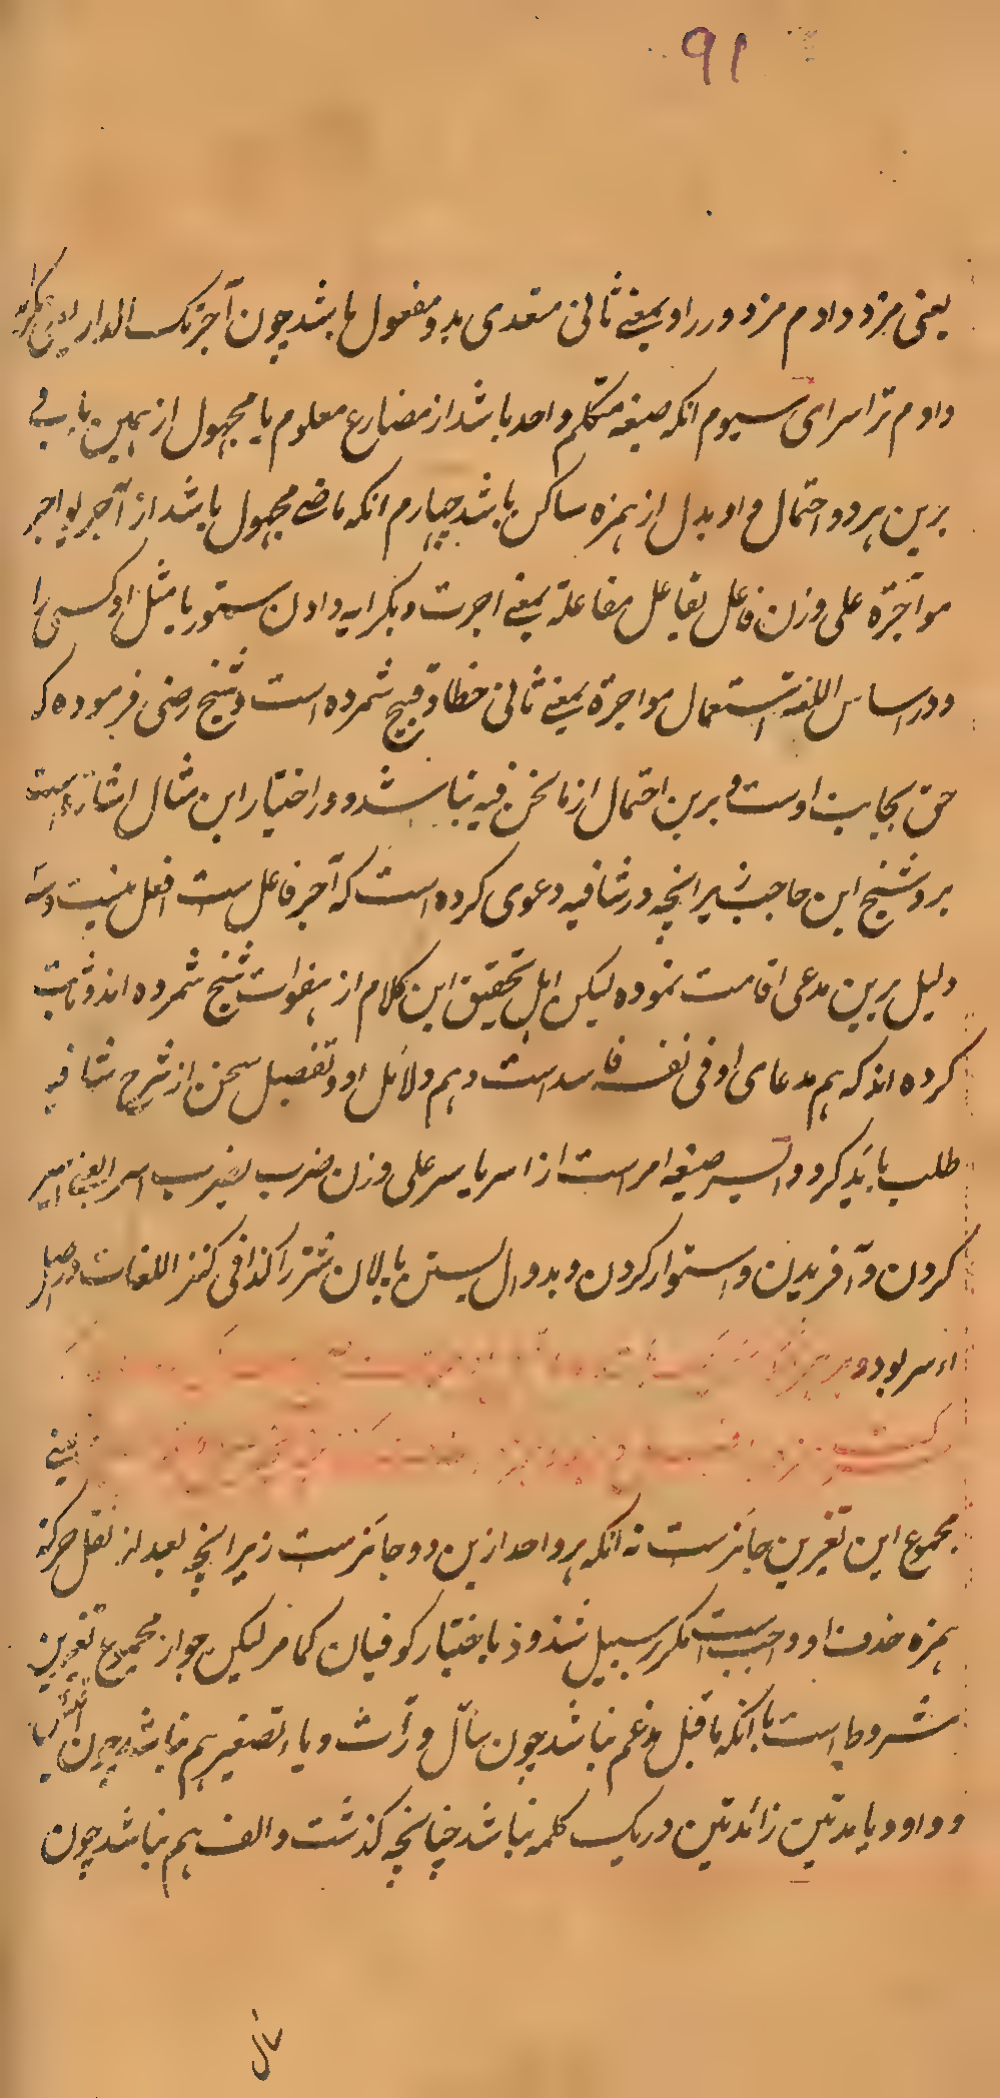 ۹۱
یعنی مزد دادم مزدور را و بمعنے ثانی متعدی بدو مفعول باشد چون آجرتک الدار یعنی بکرایه
دادم ترا سرای سیوم انکه صیغه متکلم واحد باشد از مضارع معلوم یا مجهول از همین باب و
برین هر دو احتمال واو بدل از همزه ساکن باشد چهارم انکه ماضے مجهول باشد از آجر یواجر
مواجرة علی وزن فاعل یفاعل مفاعلة بمعنے اجرت و بکرایه دادن ستور یا مثل او کسی را
و در اساس اللغه استعمال مواجرة بمعنے ثانی خطا و قبیح شمرده است و شیخ رضی فرموده که
حق بجانب اوست و برین احتمال از ما نحن فیه نباشد و در اختیار این مثال اشارتست
بر رد شیخ ابن حاجب زیرانچه در شافیه دعوی کرده است که آجر فاعل ست افعل نیست و سه
دلیل برین مدعی اقامت نموده لیکن اهل تحقیق این کلام از هفوات شیخ شمرده اند و ثابت
کرده اند که هم مدعای او فی نفسه فاسد است و هم دلائل او و تفصیل سخن از شرح شافیه
طلب باید کرد و ایسر صیغه امرست از اسر یاسر علی وزن ضرب یضرب اسرا یعنے اسیر
کردن و آفریدن و استوار کردن و بدوال بستن پالان شتر را کذا فی کنز اللغات در اصل
اءسر بوده
یعنے
مجموع این تغیرین جائزست نه انکه هر واحد ازین دو جائزست زیرانچه بعد از نقل حرکة
همزه حذف او واجب است مگر بر سبیل شذوذ باختیار کوفیان کما مر لیکن جواز مجموع تغیرین
مشروط است بانکه ماقبل مدغم نباشد چون سأل و رأث و یاء تصغیر هم نباشد چون
و واو و یا مدتین زائدتین در یک کلمه نباشد چنانچه گذشت و الف هم نباشد چون
سال